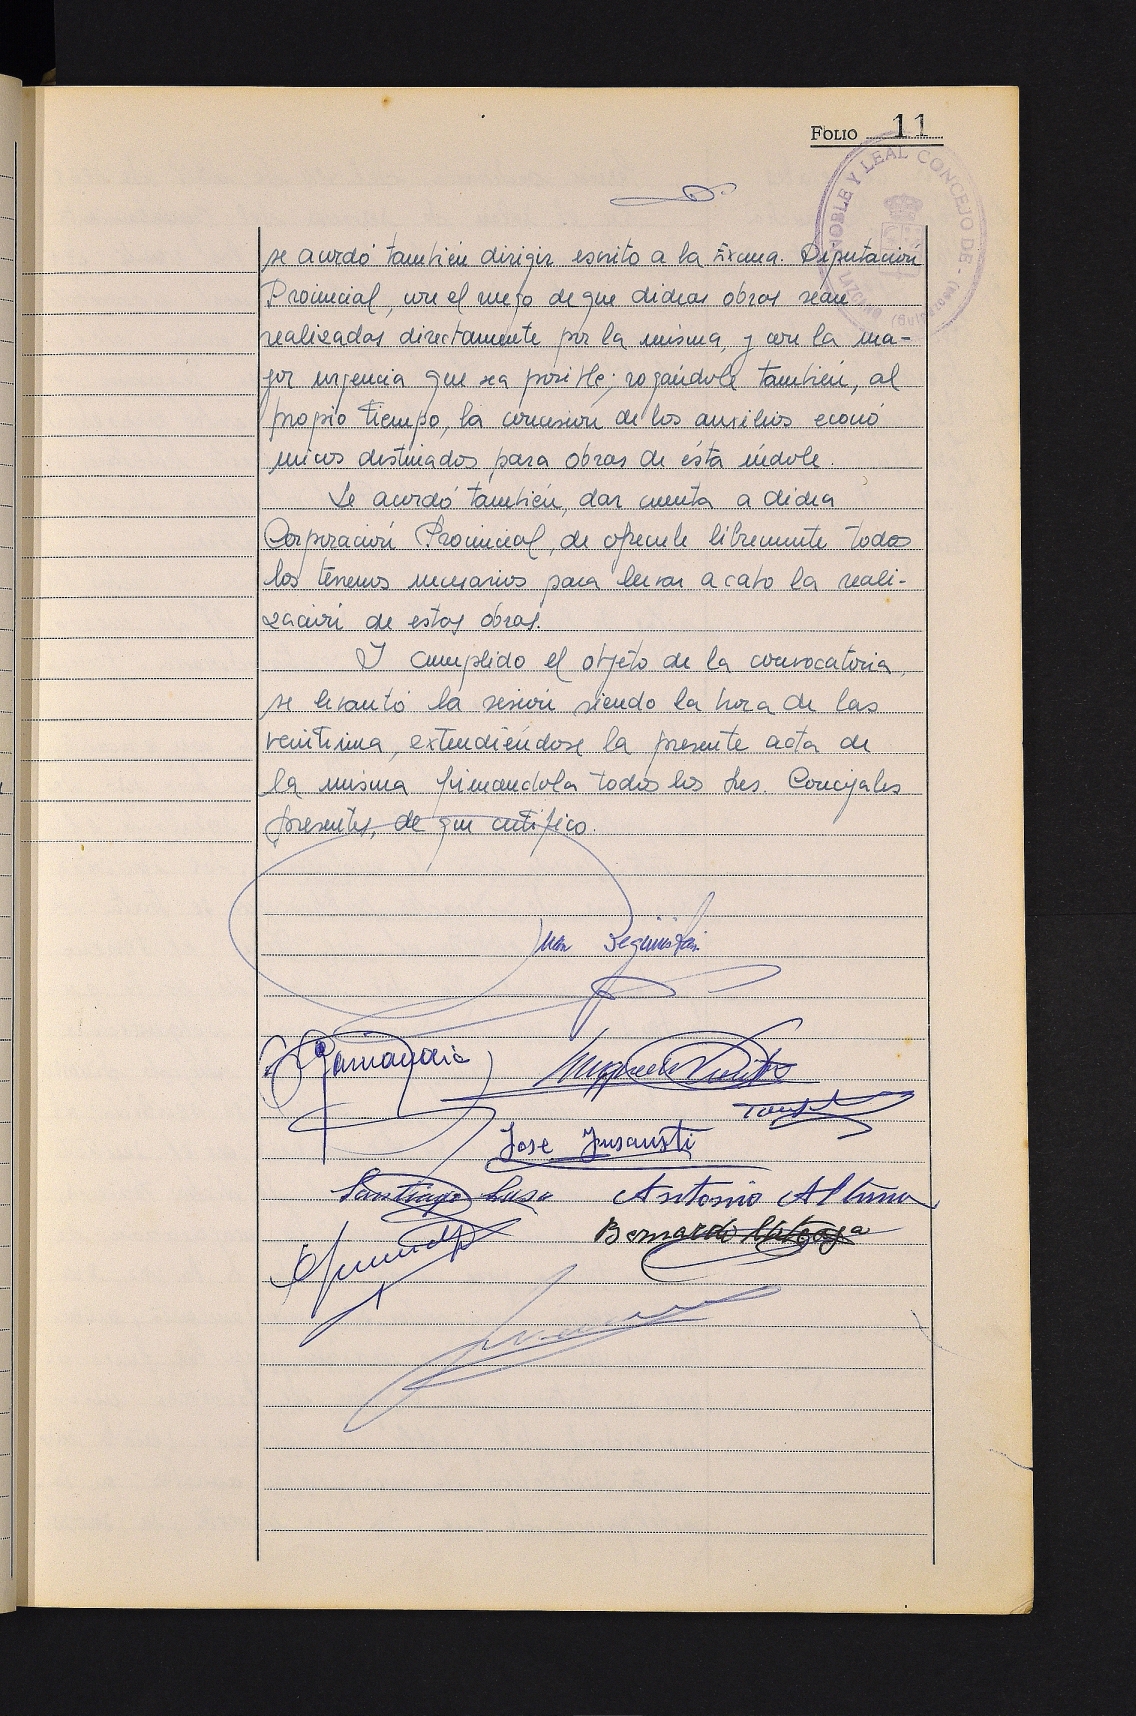 FOLIO 11
NOBLE Y LEAL CONCEJO DE - LAZCANO (Guipúzcoa)
se acordó también dirigir escrito a la Excma. Diputación
Provincial, con el ruego de que dichas obras sean
realizadas directamente por la misma, y con la ma-
yor urgencia que sea posible; rogándole también, al
propio tiempo, la concesión de los auxilios econó
micos destinados para obras de ésta índole.
Se acordó también, dar cuenta a dicha
Corporación Provincial, de ofrecerle libremente todos
los terrenos necesarios para llevar a cabo la reali-
zación de estas obras.
Y cumplido el objeto de la convocatoria,
se levantó la sesión siendo la hora de las
veintiuna, extendiéndose la presente acta de
la misma firmandola todos los Sres. Concejales
presentes, de que certifico.
Juan Beguiristain
Garmendia
Jose Insausti
Santiago Lasa Antonio Altuna
Bernardo